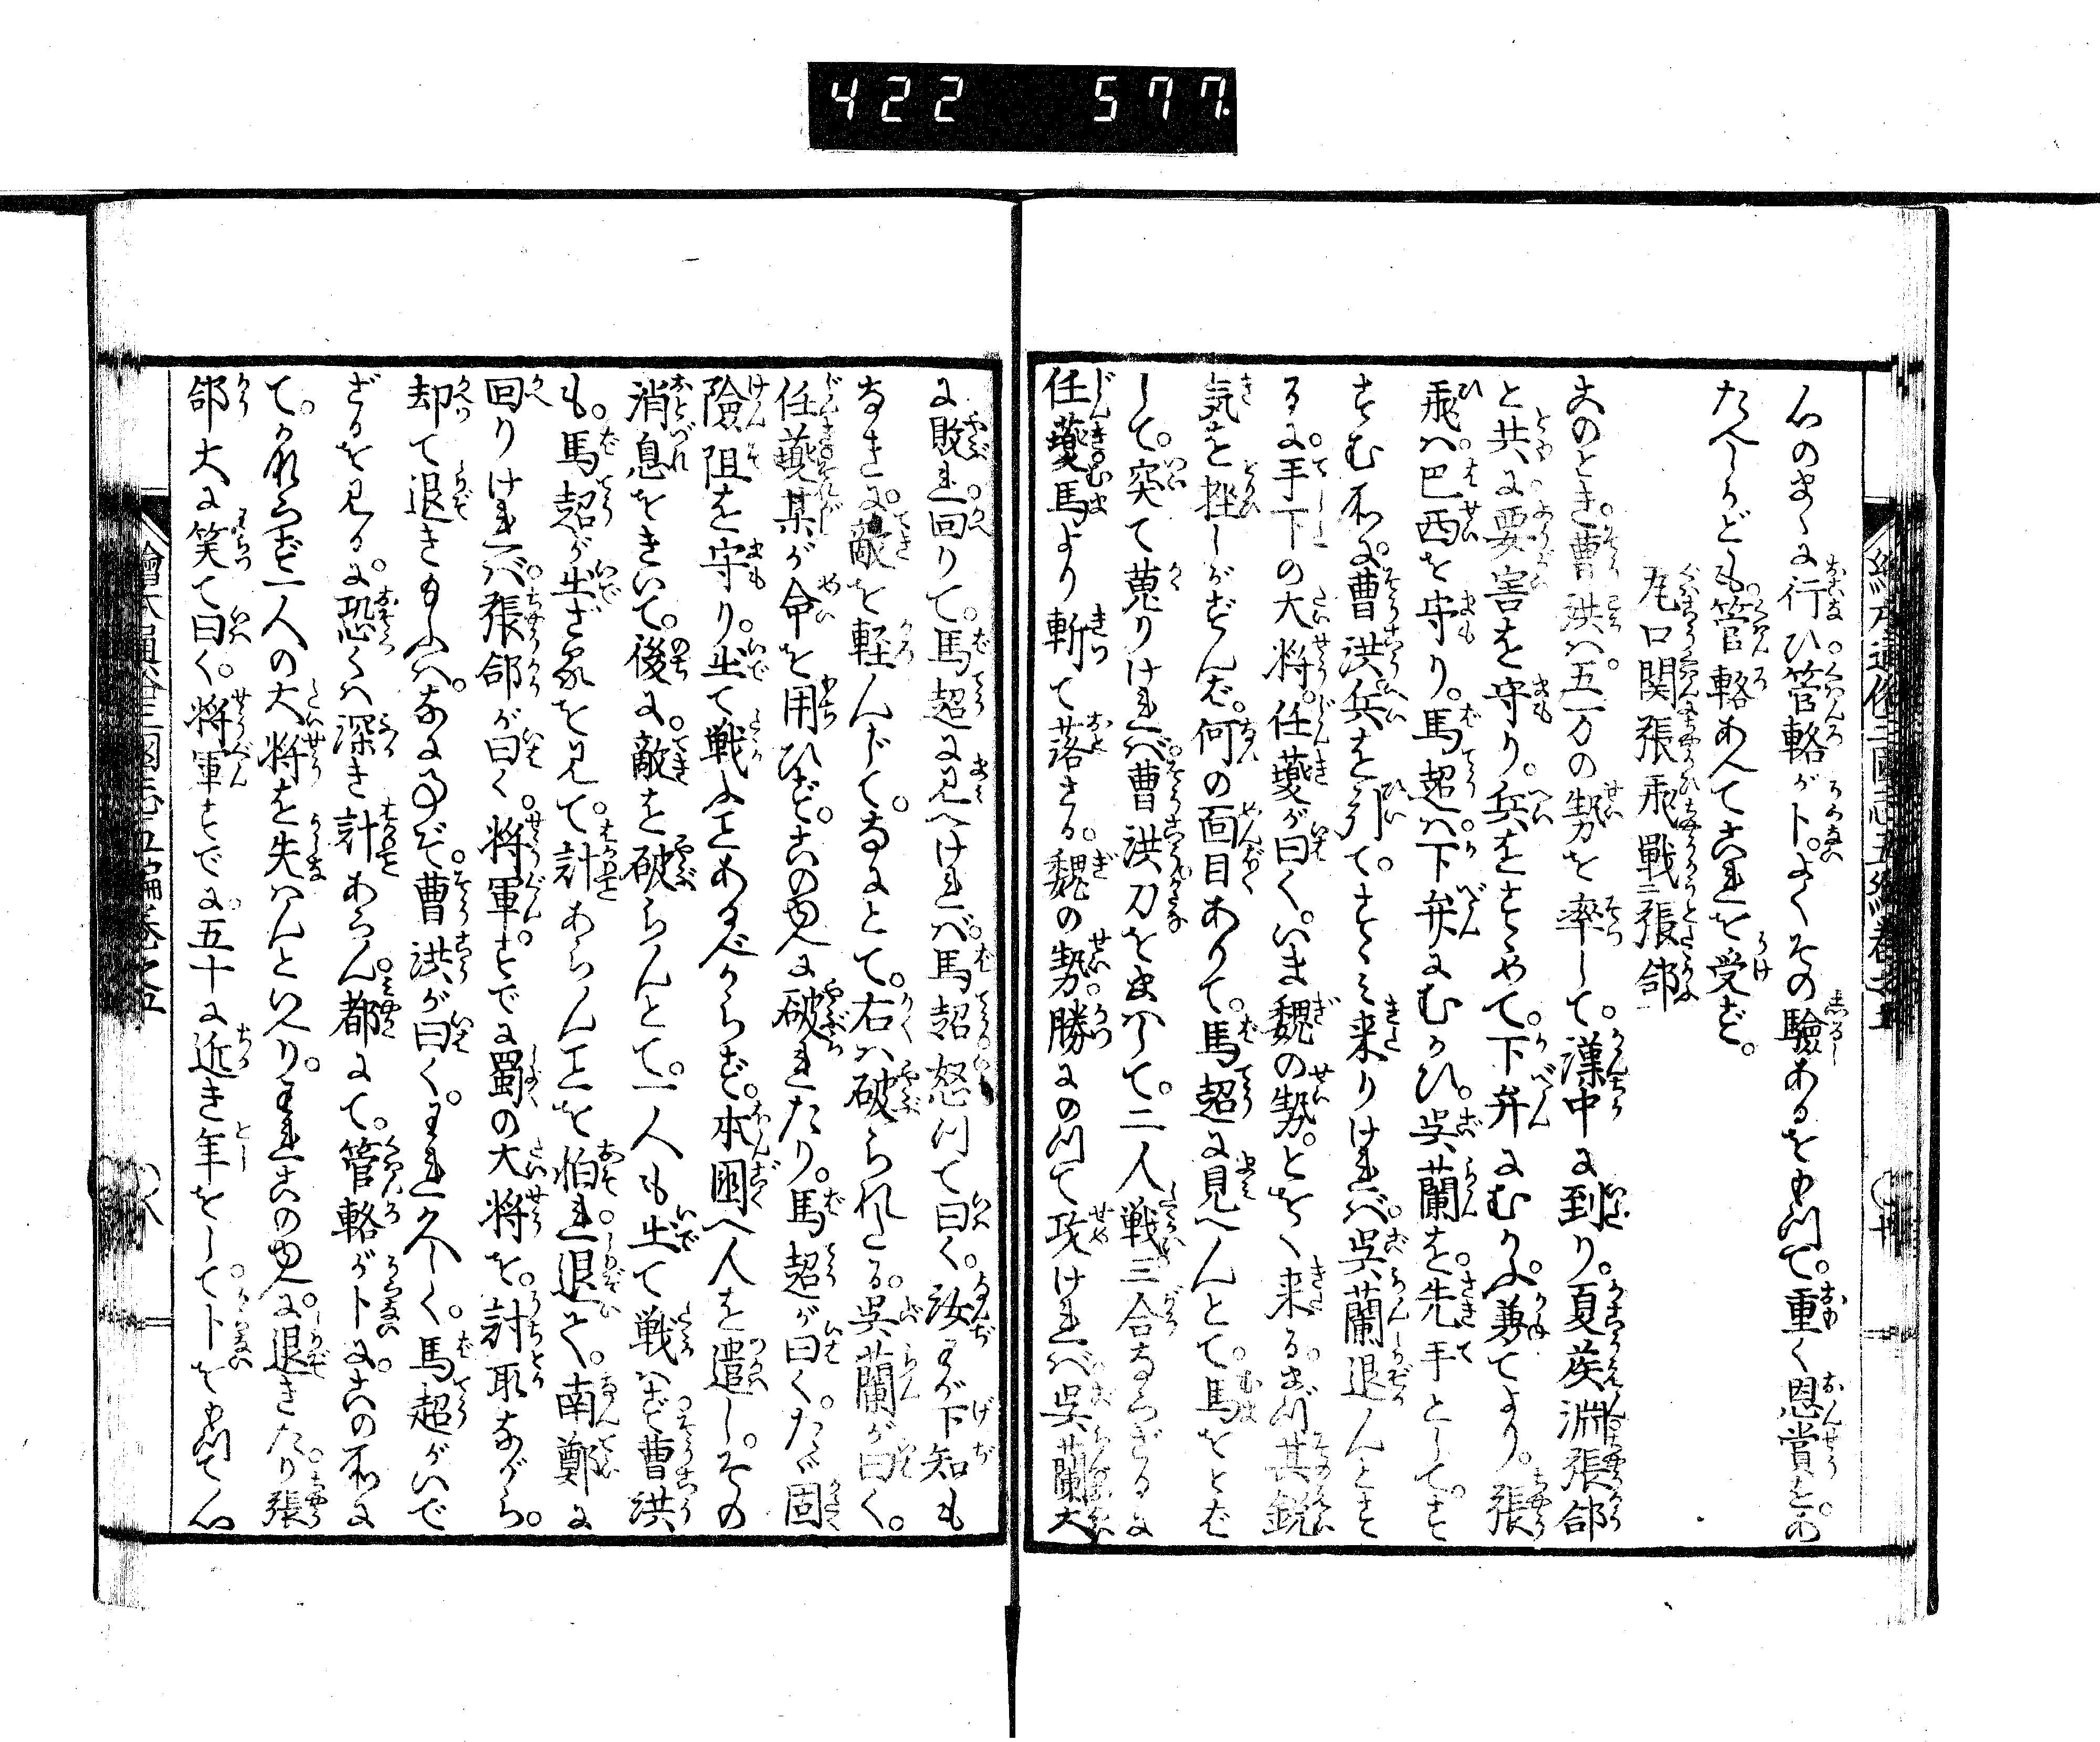 422 577
心のまゝに行ひ。管輅が卜。よくその驗あるをもつて。重く恩賞を。あ
たへしかども。管輅あへてこれを受ず。
瓦口関張飛戰二張郃一
このとき。曹洪ハ。五万の勢を率して。漢中に到り。夏侯淵張郃
と共に要害を守り。兵をすゝめて。下弁にむかふ。兼てより。張
飛ハ。巴西を守り。馬超ハ。下弁にむかひ。呉蘭を。先手として。す
すむ所に。曹洪兵を引て。すゝミ来りけれバ。呉蘭退んとす
るに。手下の大将。任夔が曰く。いま魏の勢。とをく来る。まづ其鋭
気を挫しがずんば。何の面目ありて。馬超に見へんとて。馬をとば
して。突て蒐りけれバ。曹洪刀をまハして。二人戦三合ならざるに
任夔馬より斬て落さる。魏の勢。勝にのつて攻けれバ。呉蘭大
に敗れ。回りて。馬超に見へけれバ。馬超怒つて曰く。汝わが下知も
なきに。敵を軽んじて。なにとて。右ハ破られたる。呉蘭が曰く。
任夔某が命を用ひず。このゆへに破れたり。馬超が曰く。たゞ固く
險阻を守り。出て戦ふことあるべからず。本國へ人を遣し。その
消息をきいて。後に。敵を破らんとて。一人も出て戦ハず。曹洪
も。馬超が出ざるを見て。計あらんことを怕れ。退て。南鄭に
回りけれバ。張郃が曰く。将軍。すでに蜀の大将を。討取ながら。
却て退きもふハ。なに事ぞ。曹洪が曰く。われ久しく。馬超がいで
ざるを見るに。恐くハ深き計あらん。都にて。管輅が卜に。この所に
て。かならず一人の大将を失ハんといへり。われこのゆへに。退きたり。張
郃大に笑て曰く。将軍すでに。五十に近き年をして。卜をもつて心